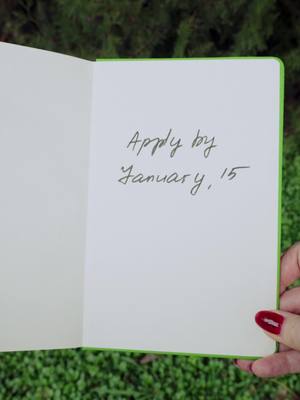 Apply by
January, 15